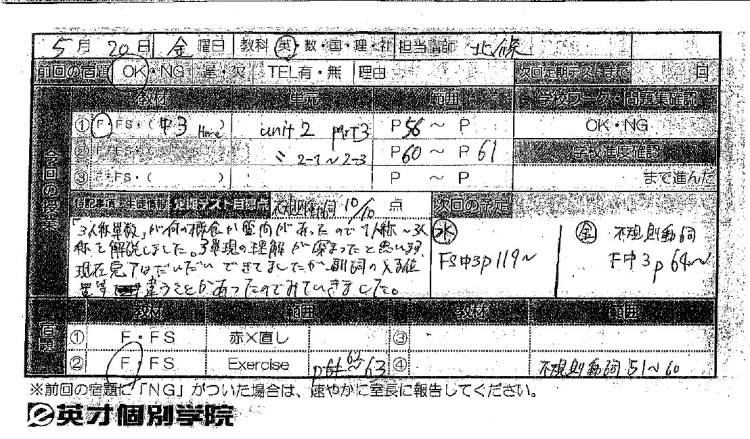 5月 20日 金曜日 教科 英・数・国・理・社 担当講師 北條
前回の宿題 OK・NG 遅・欠 TEL有・無 理由 次回定期テストまで 回
教材 単元 範囲 学校ワーク・問題集確認
今回の授業
① F・FS・(中3 Home) unit 2 part 3 P56 ~ P OK・NG
② F・FS・( 〃 2-1~2-3 P60 ~ P61 学校進度確認
③ F・FS・( ) P ~ P まで進んだ
不規則動詞 10/10 点 次回の予定
「3人称単数」が何の概念か質問があったので1人称~3人
称を解説しました。
現在完了はだいたいできてましたが、副詞の入る位
置等 違うことがあったのでみていきました。
水 FS中3p119~
金 不規則動詞
F中3p64~
宿題 教材 範囲 教材 範囲
① F・FS 赤×直し ③
② F・FS Exercise 63 ④ 不規則動詞 51~60
※前回の宿題に「NG」がついた場合は、速やかに室長に報告してください。
英才個別学院